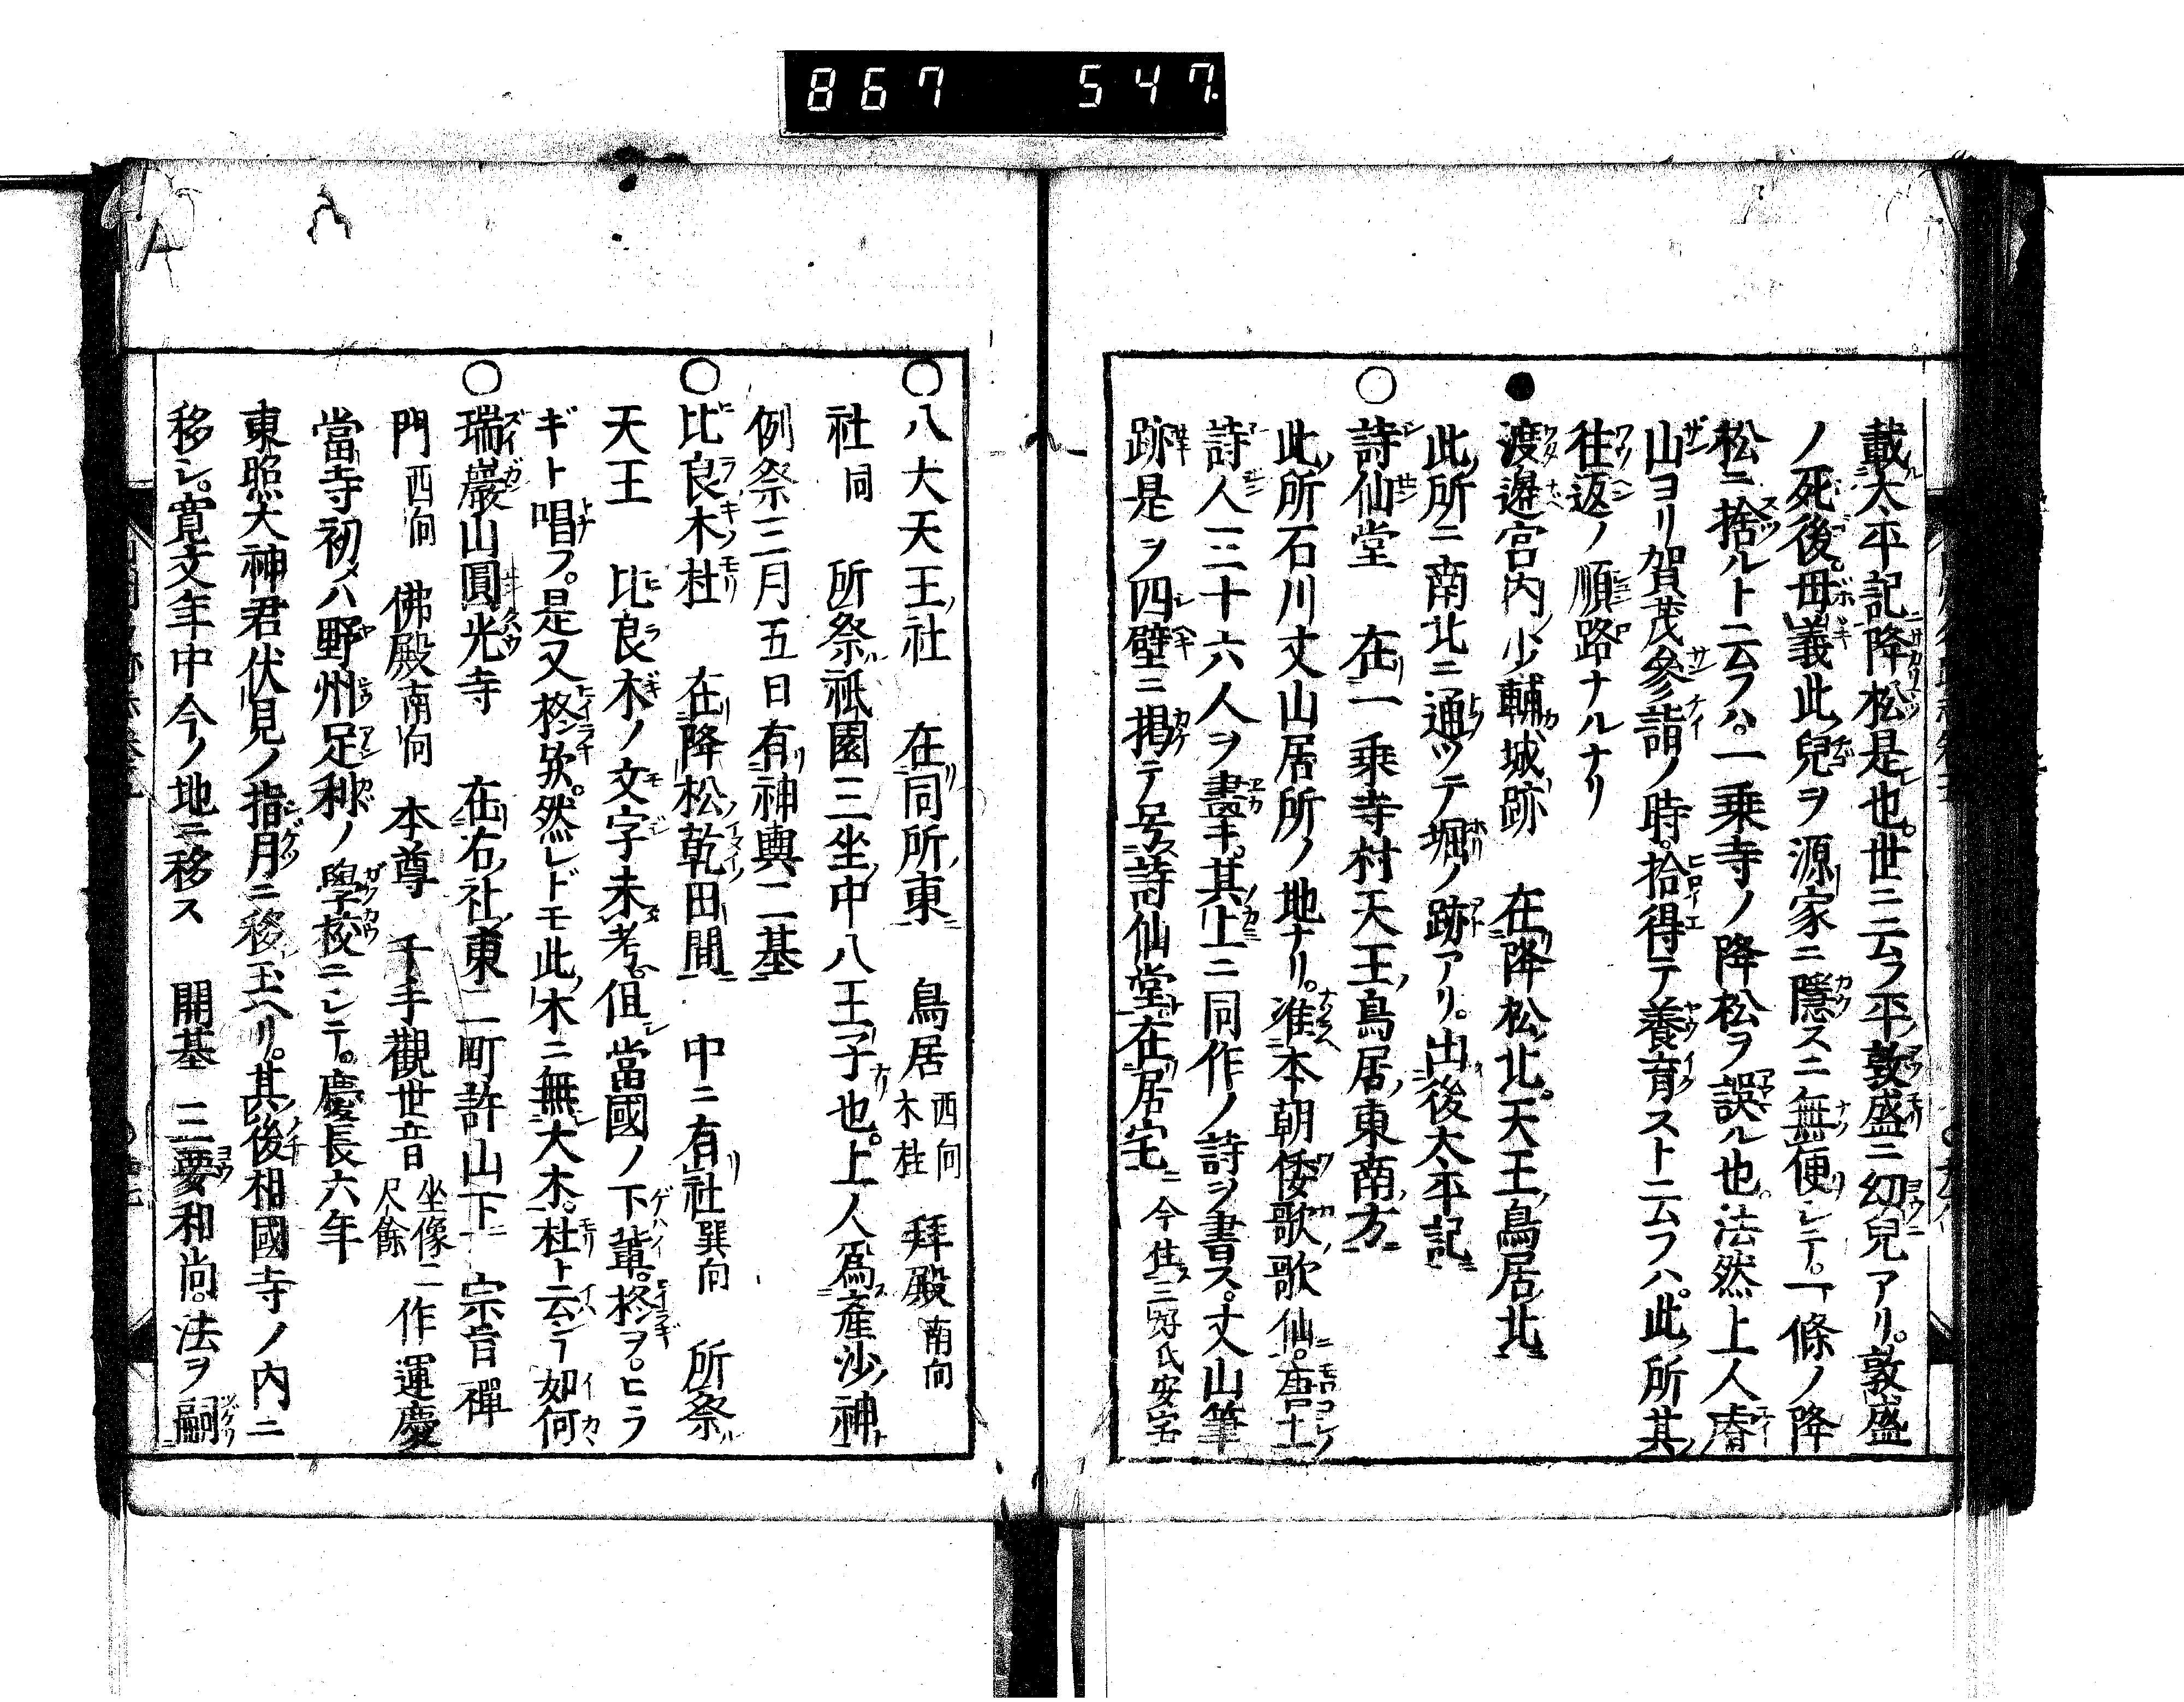 867 547
載太平記降松是也。世ニ云フ平敦盛ニ幼兒アリ。敦盛
ノ死後。母義此兒ヲ源家ニ隱スニ無便シテ。一條ノ降
松ニ捨ルト云フハ。一乗寺ノ降松ヲ誤ル也。法然上人
山ヨリ賀茂參詣ノ時。拾得テ養育ストニ云フハ。此所其
往返ノ順路ナルナリ
●渡邊宮内少輔城跡 在降松北。天王鳥居北
此所ニ南北ニ通ツテ堀ノ跡アリ。出後太平記
○詩仙堂 在一乗寺村天王鳥居東南方
此所石川丈山居所ノ地ナリ。准本朝倭歌歌仙。唐土
詩人三十六人ヲ畫。其上ニ同作ノ詩ヲ書ス。丈山筆
跡是ヲ四壁ニ掲テ号詩仙堂在居宅 今住三好氏安宅
○八大天王社 在同所東 鳥居 西向 木柱 拜殿 南向
社 同 所祭祇園三坐中八王子也。上人爲產沙神
例祭三月五日有神輿二基
○比良木杜 在降松乾田間 中ニ有社 巽向 所祭
天王 比良木ノ文字未考。但當國ノ下輩。柊ヲ。ヒラ
ギト唱フ。是又柊欤。然レドモ此木ニ無大木。杜ト云テ如何
○瑞巖山圓光寺 在右社東二町許山下 宗旨禪
門 西向 佛殿 南向 本尊 千手觀世音 坐像二尺餘 作運慶
當寺初メハ野州足利ノ學校ニシテ。慶長六年
東照大神君伏見ノ指月ニ移玉ヘリ。其後相國寺ノ内ニ
移シ。寛文年中今ノ地ニ移ス 開基 三要和尚。法ヲ嗣